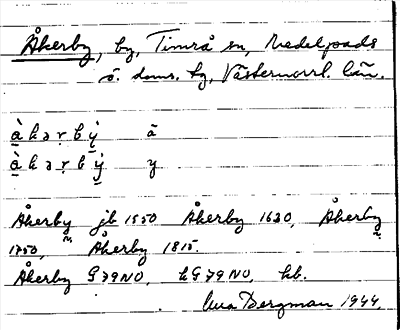 Åkerby, by, Timrå sn, Medelpads
ö. doms. tg, Västernorrl. län.
à k ə ṛ b ỳ̨ ä
à k ə ṛ b ý y
Åkerby jb 1550 Åkerby 1620, Åkerby
1750, Åkerby 1815.
Åkerby G 79 NO, hG 79 NO, hb.
Bergman 1944